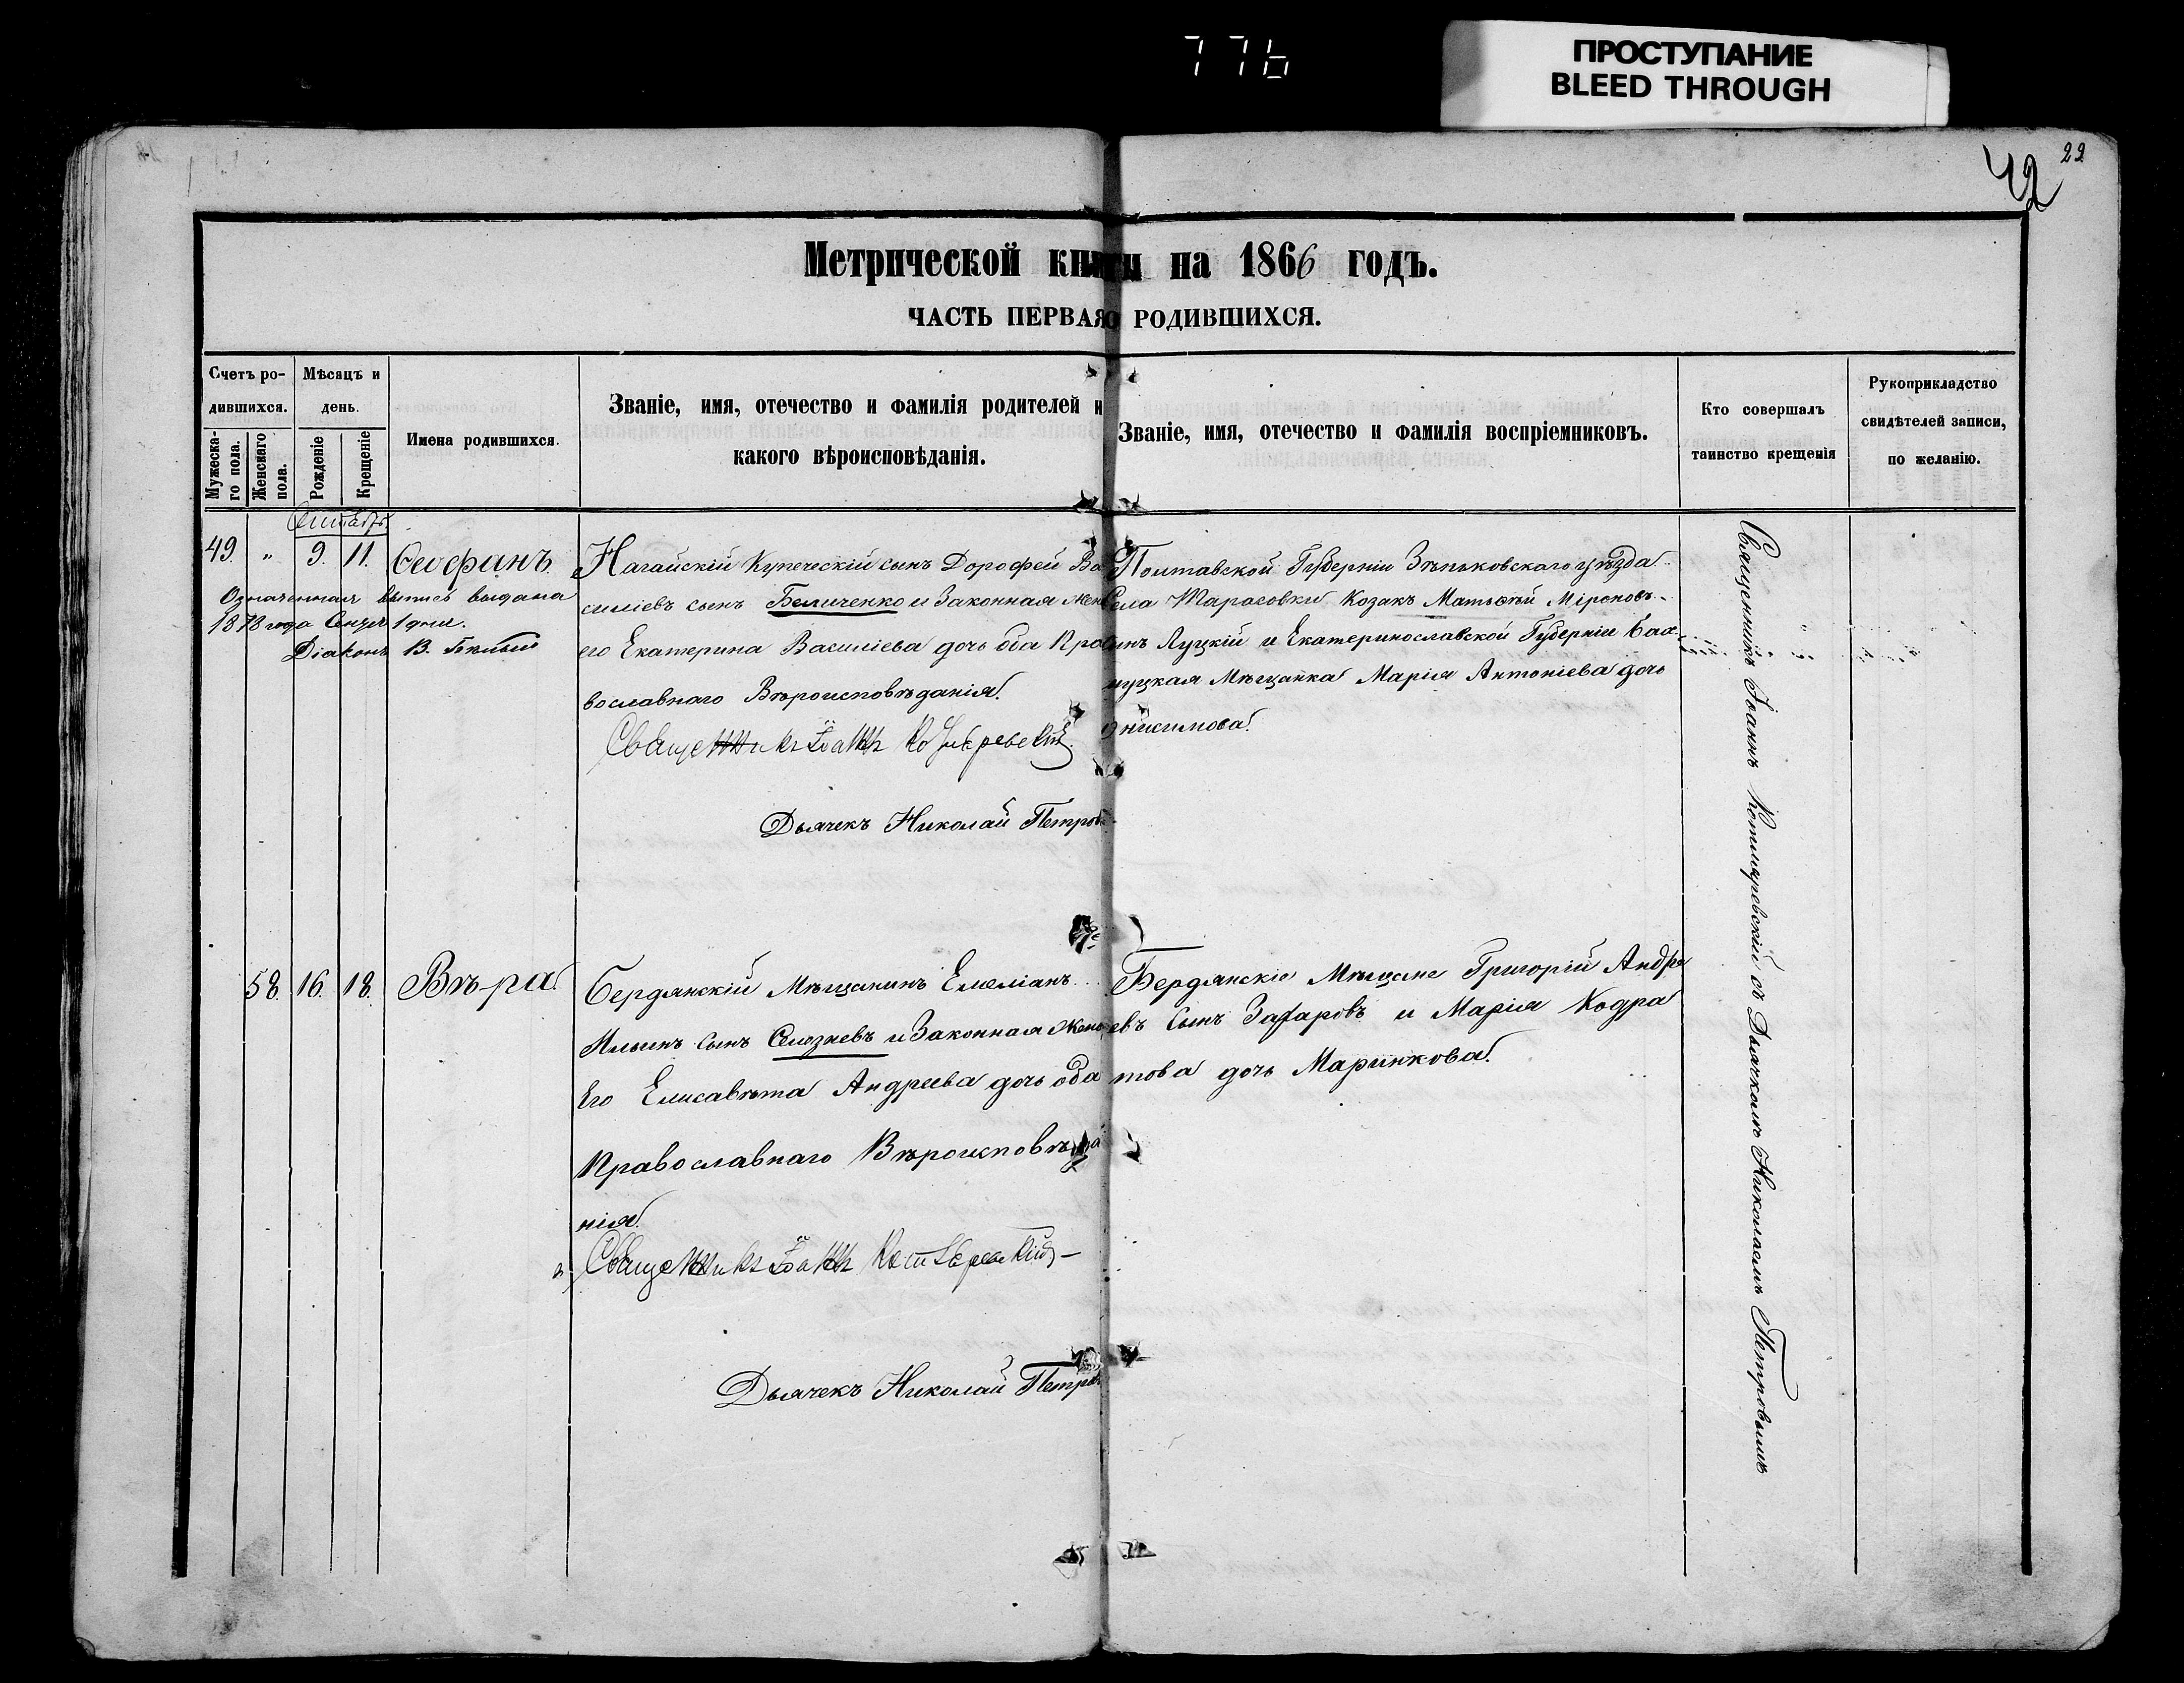 776
ПРОСТУПАНИЕ
BLEED THROUGH
22
42
Метрической книги на 1866 годъ.
ЧАСТЬ ПЕРВАЯ О РОДИВШИХСЯ.
Счетъ ро-
дившихся.
Мужеска-
го пола.
Женскаго
пола.
Мѣсяцъ и
день.
Рожденіе
Крещеніе
Имена родившихся.
Званіе, имя, отечество и фамилія родителей и
какого вѣроисповѣданія.
Званіе, имя, отечество и фамилія воспріемниковъ.
Кто совершалъ
таинство крещенія
Рукоприкладство
свидѣтелей записи,
по желанію.
Сентябрь.
49. " 9. 11. Ѳеофанъ.
Означенная выпись выдана
1878 года 1 дня.
Діаконъ В.
Нагайскій Купеческій сынъ Дорофей Ва
силіевъ сынъ Беличенко и Законная жена
его Екатерина Василіева дочь оба Пра
вославнаго Вѣроисповѣданія.
Священникъ Іоаннъ Котляревскій.
Дьячекъ Николай Петровъ
Полтавской Губерніи Зѣньковскаго уѣзда
Села Тарасовки Козакъ Матвѣй Міроновъ
сынъ Луцкій и Екатеринославской Губерніи Бах-
муцкая Мѣщанка Марія Антоніева дочь
Онисимова.
58. 16. 18. Вѣра.
Бердянскій Мѣщанинъ Емеліанъ
Ильинъ Сынъ Селезневъ и Законная жена
Его Елисавѣта Андреева дочь оба
Православнаго Вѣроисповѣда
нія.
Священникъ Іоаннъ Котляревскій
Дьячекъ Николай Петровъ
Бердянскіе Мѣщане Григорій Андре
евъ Сынъ Захаровъ и Марія Кодра
това дочь Маринкова.
Священникъ Іоаннъ Котляревскій съ Дьячкомъ Николаемъ Петровымъ